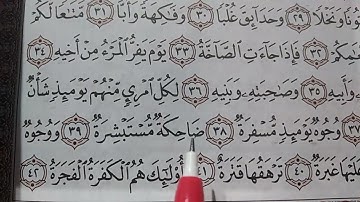 وَنَخْلًا ٢٩ وَحَدَآئِقَ غُلْبًا ٣٠ وَفَٰكِهَةً وَأَبًّا ٣١ مَّتَٰعًا لَّكُمْ
٣٢ فَإِذَا جَآءَتِ ٱلصَّآخَّةُ ٣٣ يَوْمَ يَفِرُّ ٱلْمَرْءُ مِنْ أَخِيهِ ٣٤
وَأَبِيهِ ٣٥ وَصَٰحِبَتِهِۦ وَبَنِيهِ ٣٦ لِكُلِّ ٱمْرِئٍ مِّنْهُمْ يَوْمَئِذٍ شَأْنٌ
وُجُوهٌ يَوْمَئِذٍ مُّسْفِرَةٌ ٣٨ ضَاحِكَةٌ مُّسْتَبْشِرَةٌ ٣٩ وَوُجُوهٌ
عَلَيْهَا غَبَرَةٌ ٤٠ تَرْهَقُهَا قَتَرَةٌ ٤١ أُو۟لَٰٓئِكَ هُمُ ٱلْكَفَرَةُ ٱلْفَجَرَةُ ٤٢